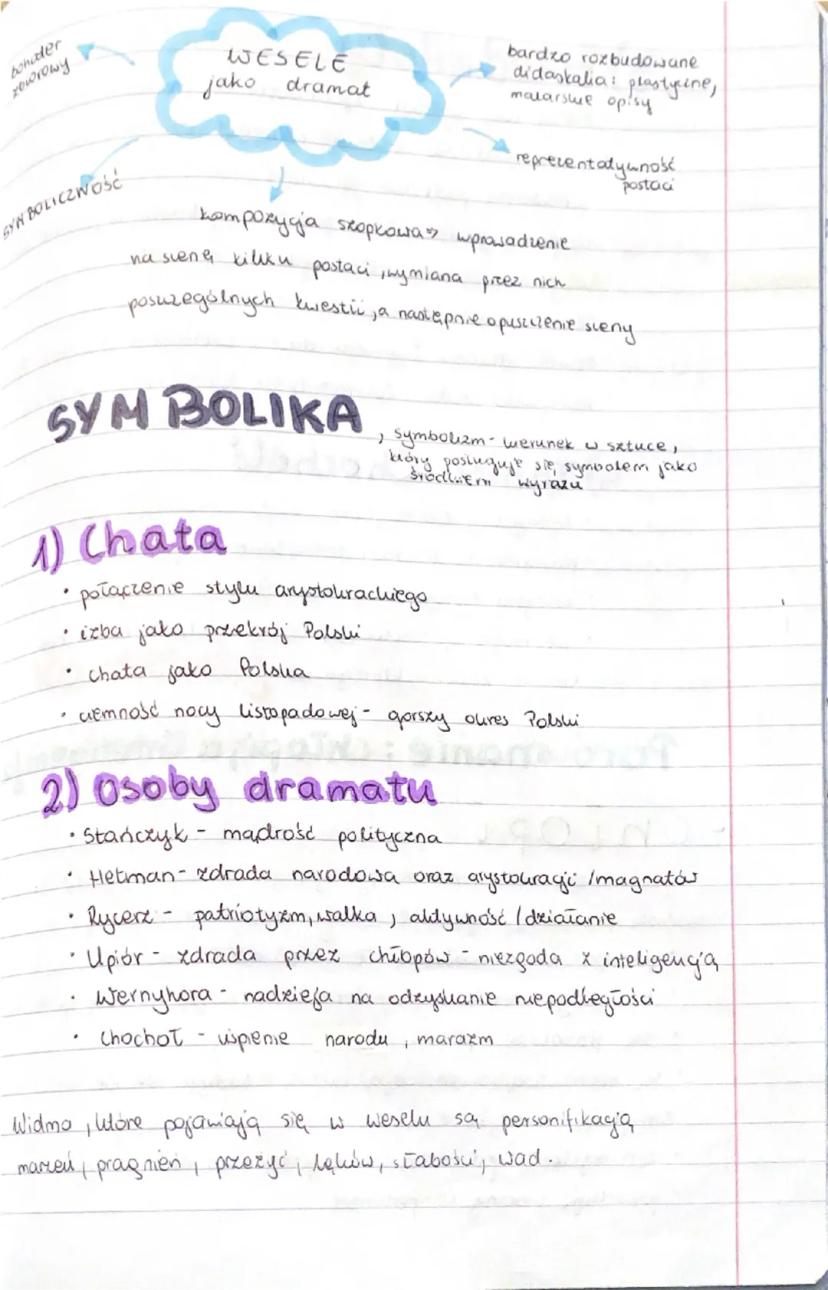 WESELE
jako dramat
bohater
zbiorowy
bardzo rozbudowane
didaskalia: plastyczne,
malarskie opisy
reprezentatywność
postaci
SYMBOLICZNOŚĆ
kompozycja szopkowa => wprowadzenie
na scenę kilku postaci, wymiana przez nich
poszczególnych kwestii, a następnie opuszczenie sceny
SYMBOLIKA
, symbolizm - kierunek w sztuce,
który posługuje się symbolem jako
środkiem wyrazu
1) Chata
• połączenie stylu arystokrackiego
• izba jako przekrój Polski
• chata jako Polska
• ciemność nocy listopadowej - gorszy okres Polski
2) Osoby dramatu
• Stańczyk - mądrość polityczna
• Hetman - zdrada narodowa oraz arystokracji /magnatów
• Rycerz - patriotyzm, walka, aktywność /działanie
• Upiór - zdrada przez chłopów - niezgoda z inteligencją
• Wernyhora - nadzieja na odzyskanie niepodległości
• Chochoł - uśpienie narodu, marazm
Widmo, które pojawiają się w weselu są personifikacją
marzeń, pragnień, przeżyć, lęków, słabości, wad.